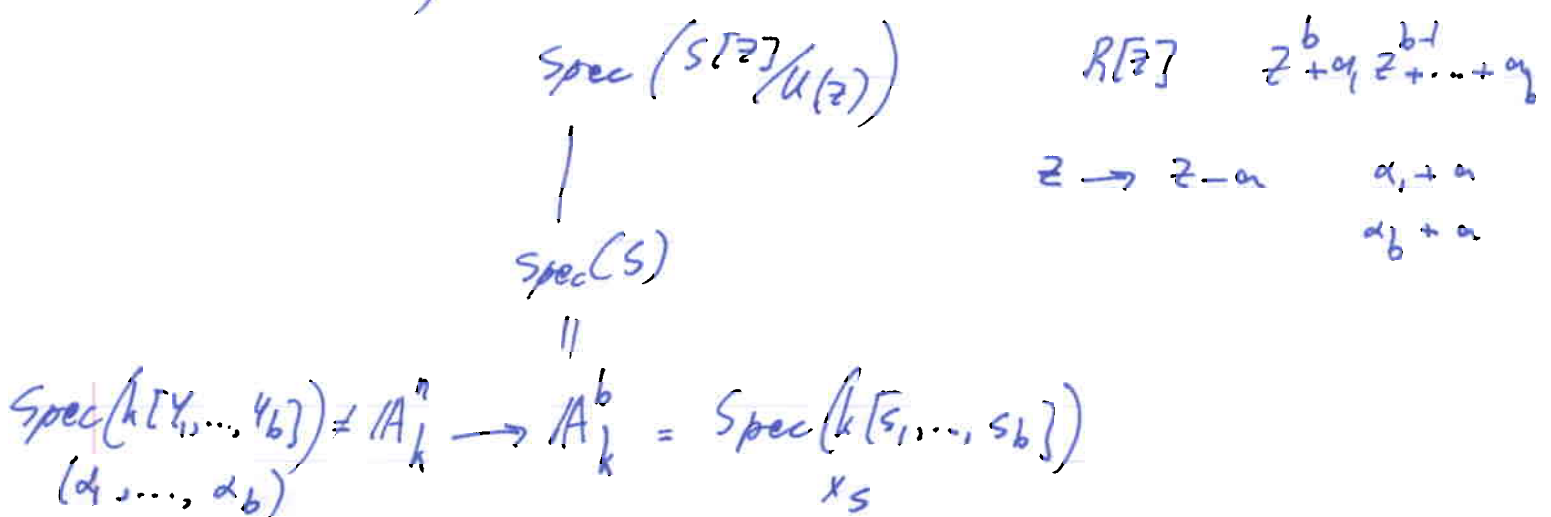 Spec (S[Z]/u(z)) R[Z] Z^b + a_1 Z^{b-1} + ... + a_b
Z → Z - a α_1 + a
α_b + a
Spec(S)
||
Spec(k[Y_1, ..., Y_b]) = A^n_k → A^b_k = Spec(k[s_1, ..., s_b])
(α_1, ..., α_b) x_s